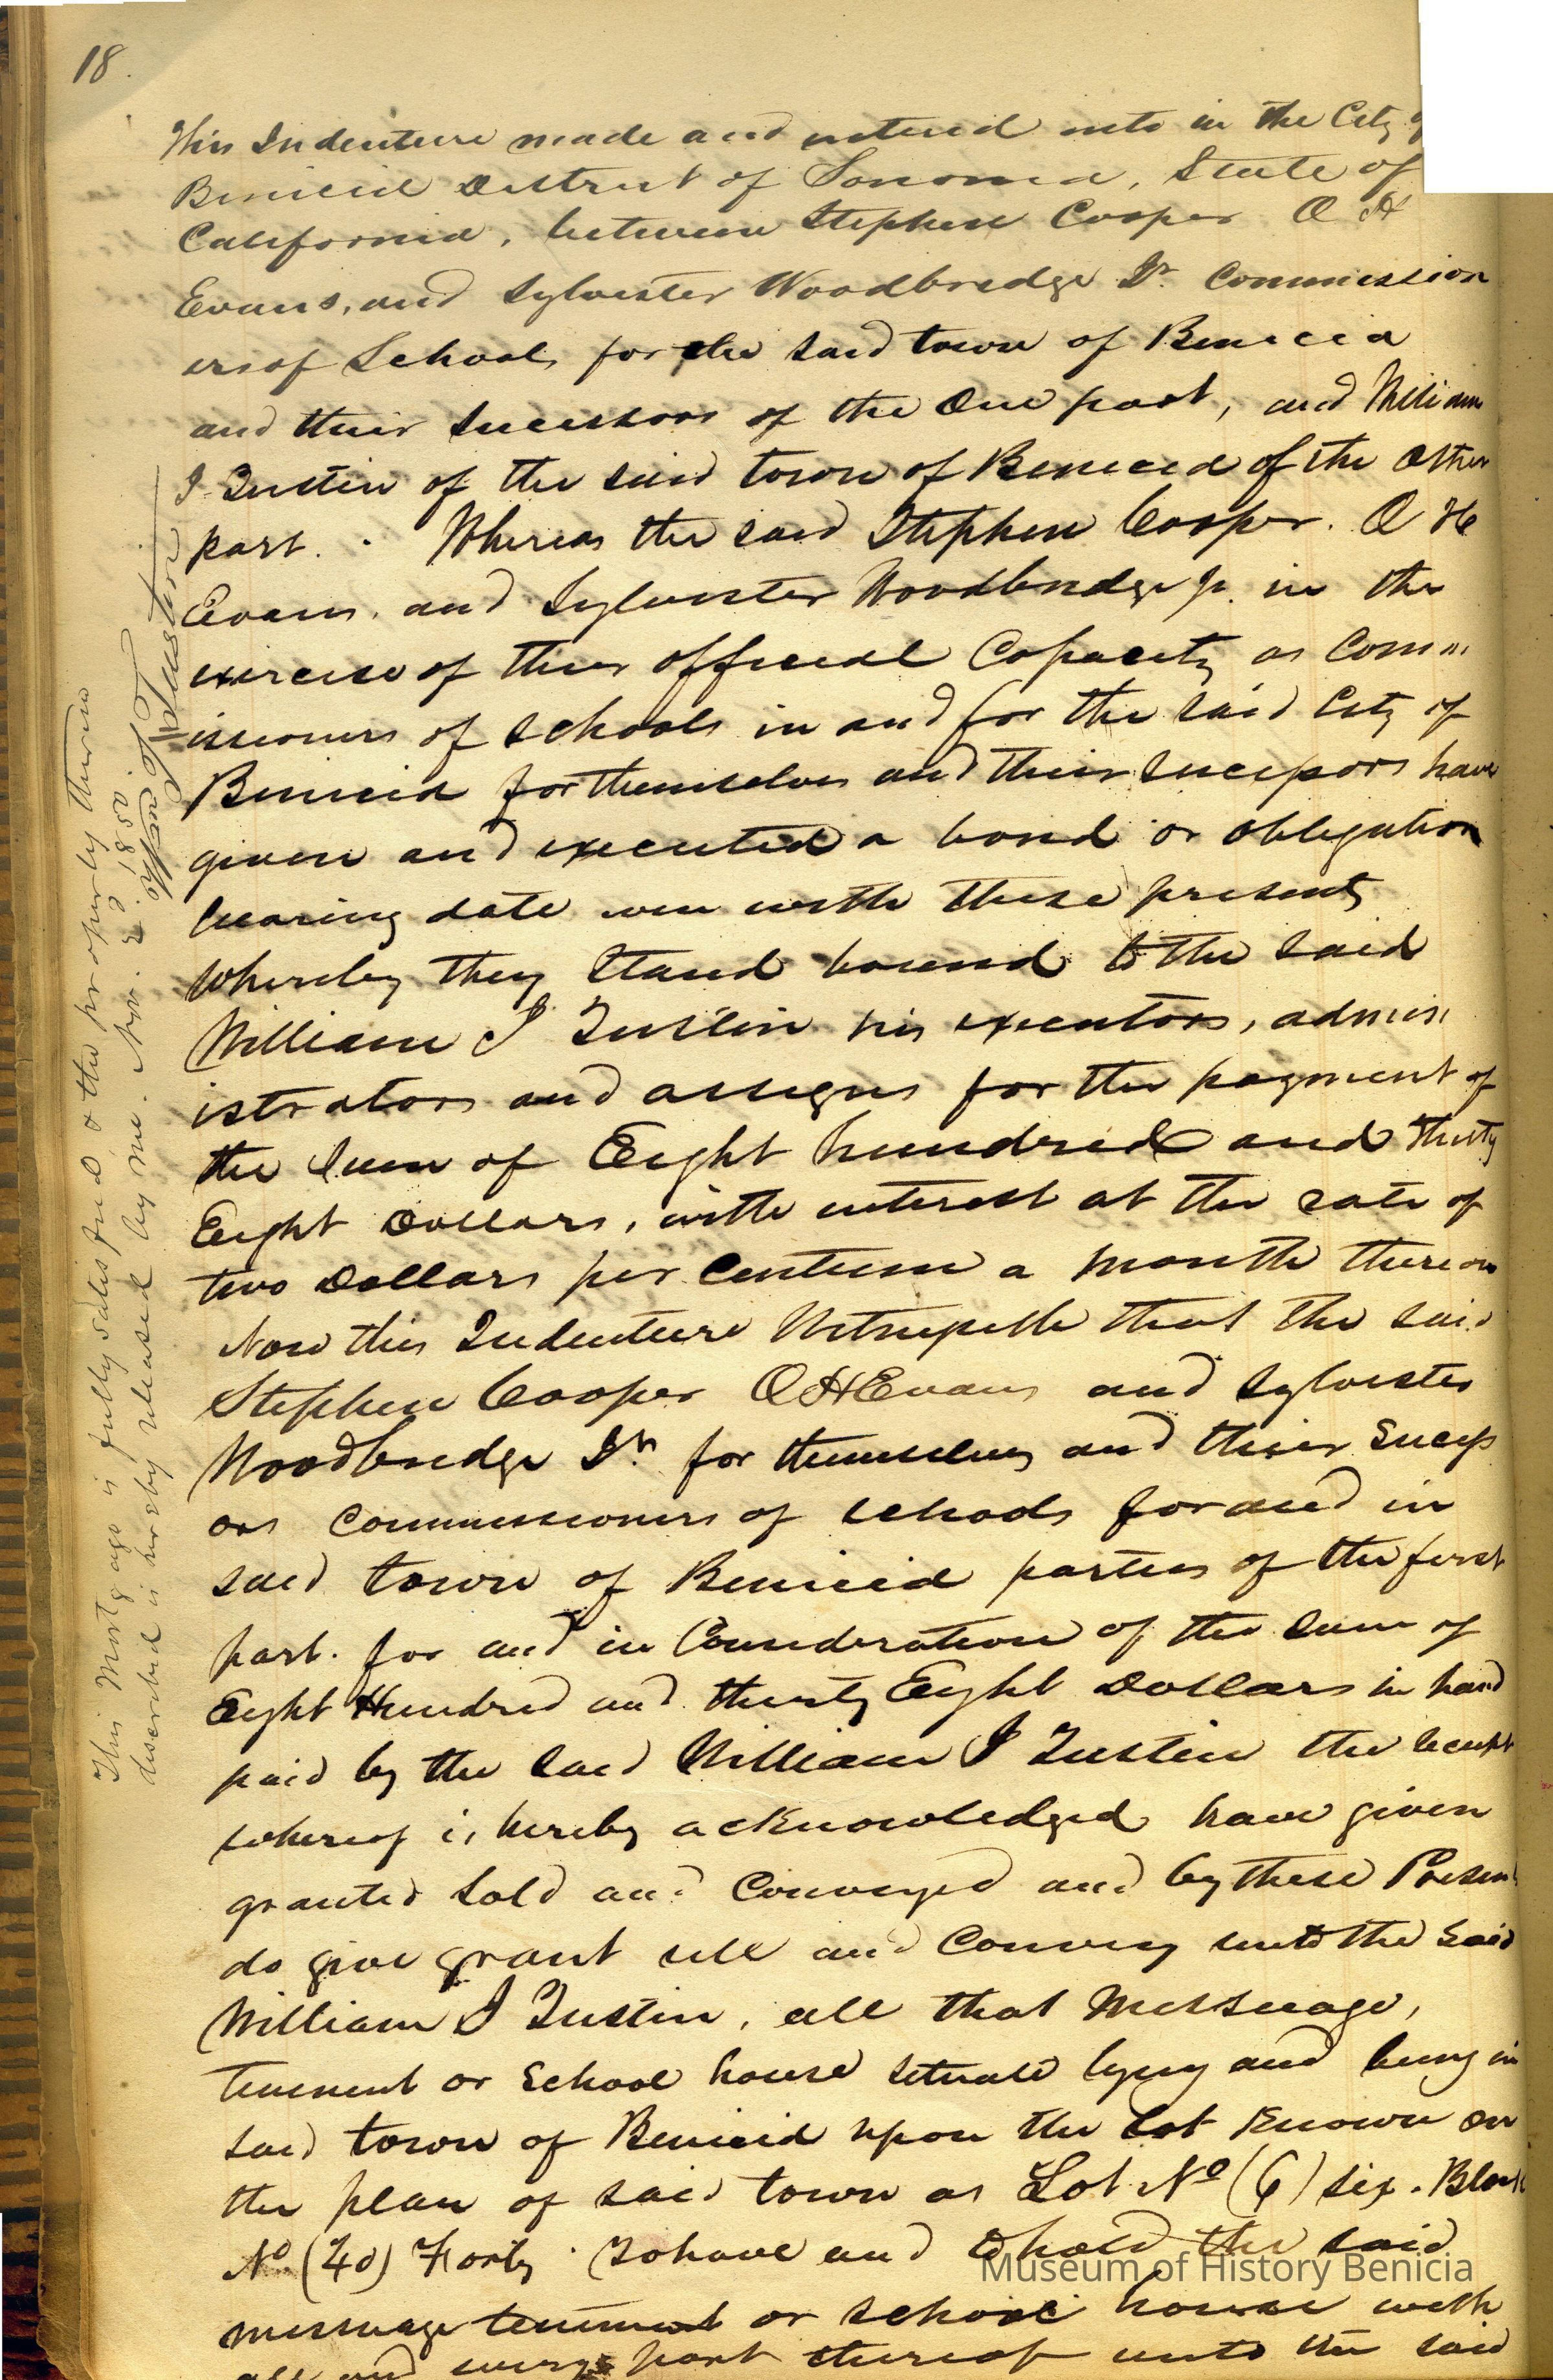 18.
This Indenture made and entered into in the City of
Benicia District of Sonoma, State of
California, between Stephen Cooper O H
Evans, and Sylvester Woodbridge Jr. Commission
ers of Schools for the said town of Benicia
and their successors of the One part, and William
I Tustin of the said town of Benicia of the Other
part. . Whereas the said Stephen Cooper. O H
Evans, and Sylvester Woodbridge Jr. in the
exercise of their official Capacity as Comm
issioners of schools in and for the said City of
Benicia for themselves and their sucessors have
given and executed a bond or obligation
bearing date even with these presents
whereby they stand bound to the said
William I Tustin his executors, admin
istrators and assigns for the payment of
the sum of Eight hundred and thirty
Eight Dollars, with interest at the rate of
two Dollars per Centum a month thereon
Now this Indenture Witnesseth that the said
Stephen Cooper O H Evans and Sylvester
Woodbridge Jr. for themselves and their Sucess
ors Commissioners of schools for and in
said town of Benicia parties of the first
part. for and in Consideration of the sum of
Eight Hundred and thirty Eight Dollars in hand
paid by the said William I Tustin the receipt
whereof is hereby acknowledged have given
granted sold and Conveyed and by these Presents
do give grant sell and Convey unto the said
William I Tustin, all that Messuage,
tenement or School house situate lying and being in
said town of Benicia upon the Lot Known on
the plan of said town as Lot No (6) six. Block
No (40) Forty. To have and to hold the said
messuage tenement or school house with
all and every part thereof unto the said
This Mortgage is fully satisfied & the property therein
described is hereby released by me. Nov. 2d. 1850.
Tustin
Museum of History Benicia